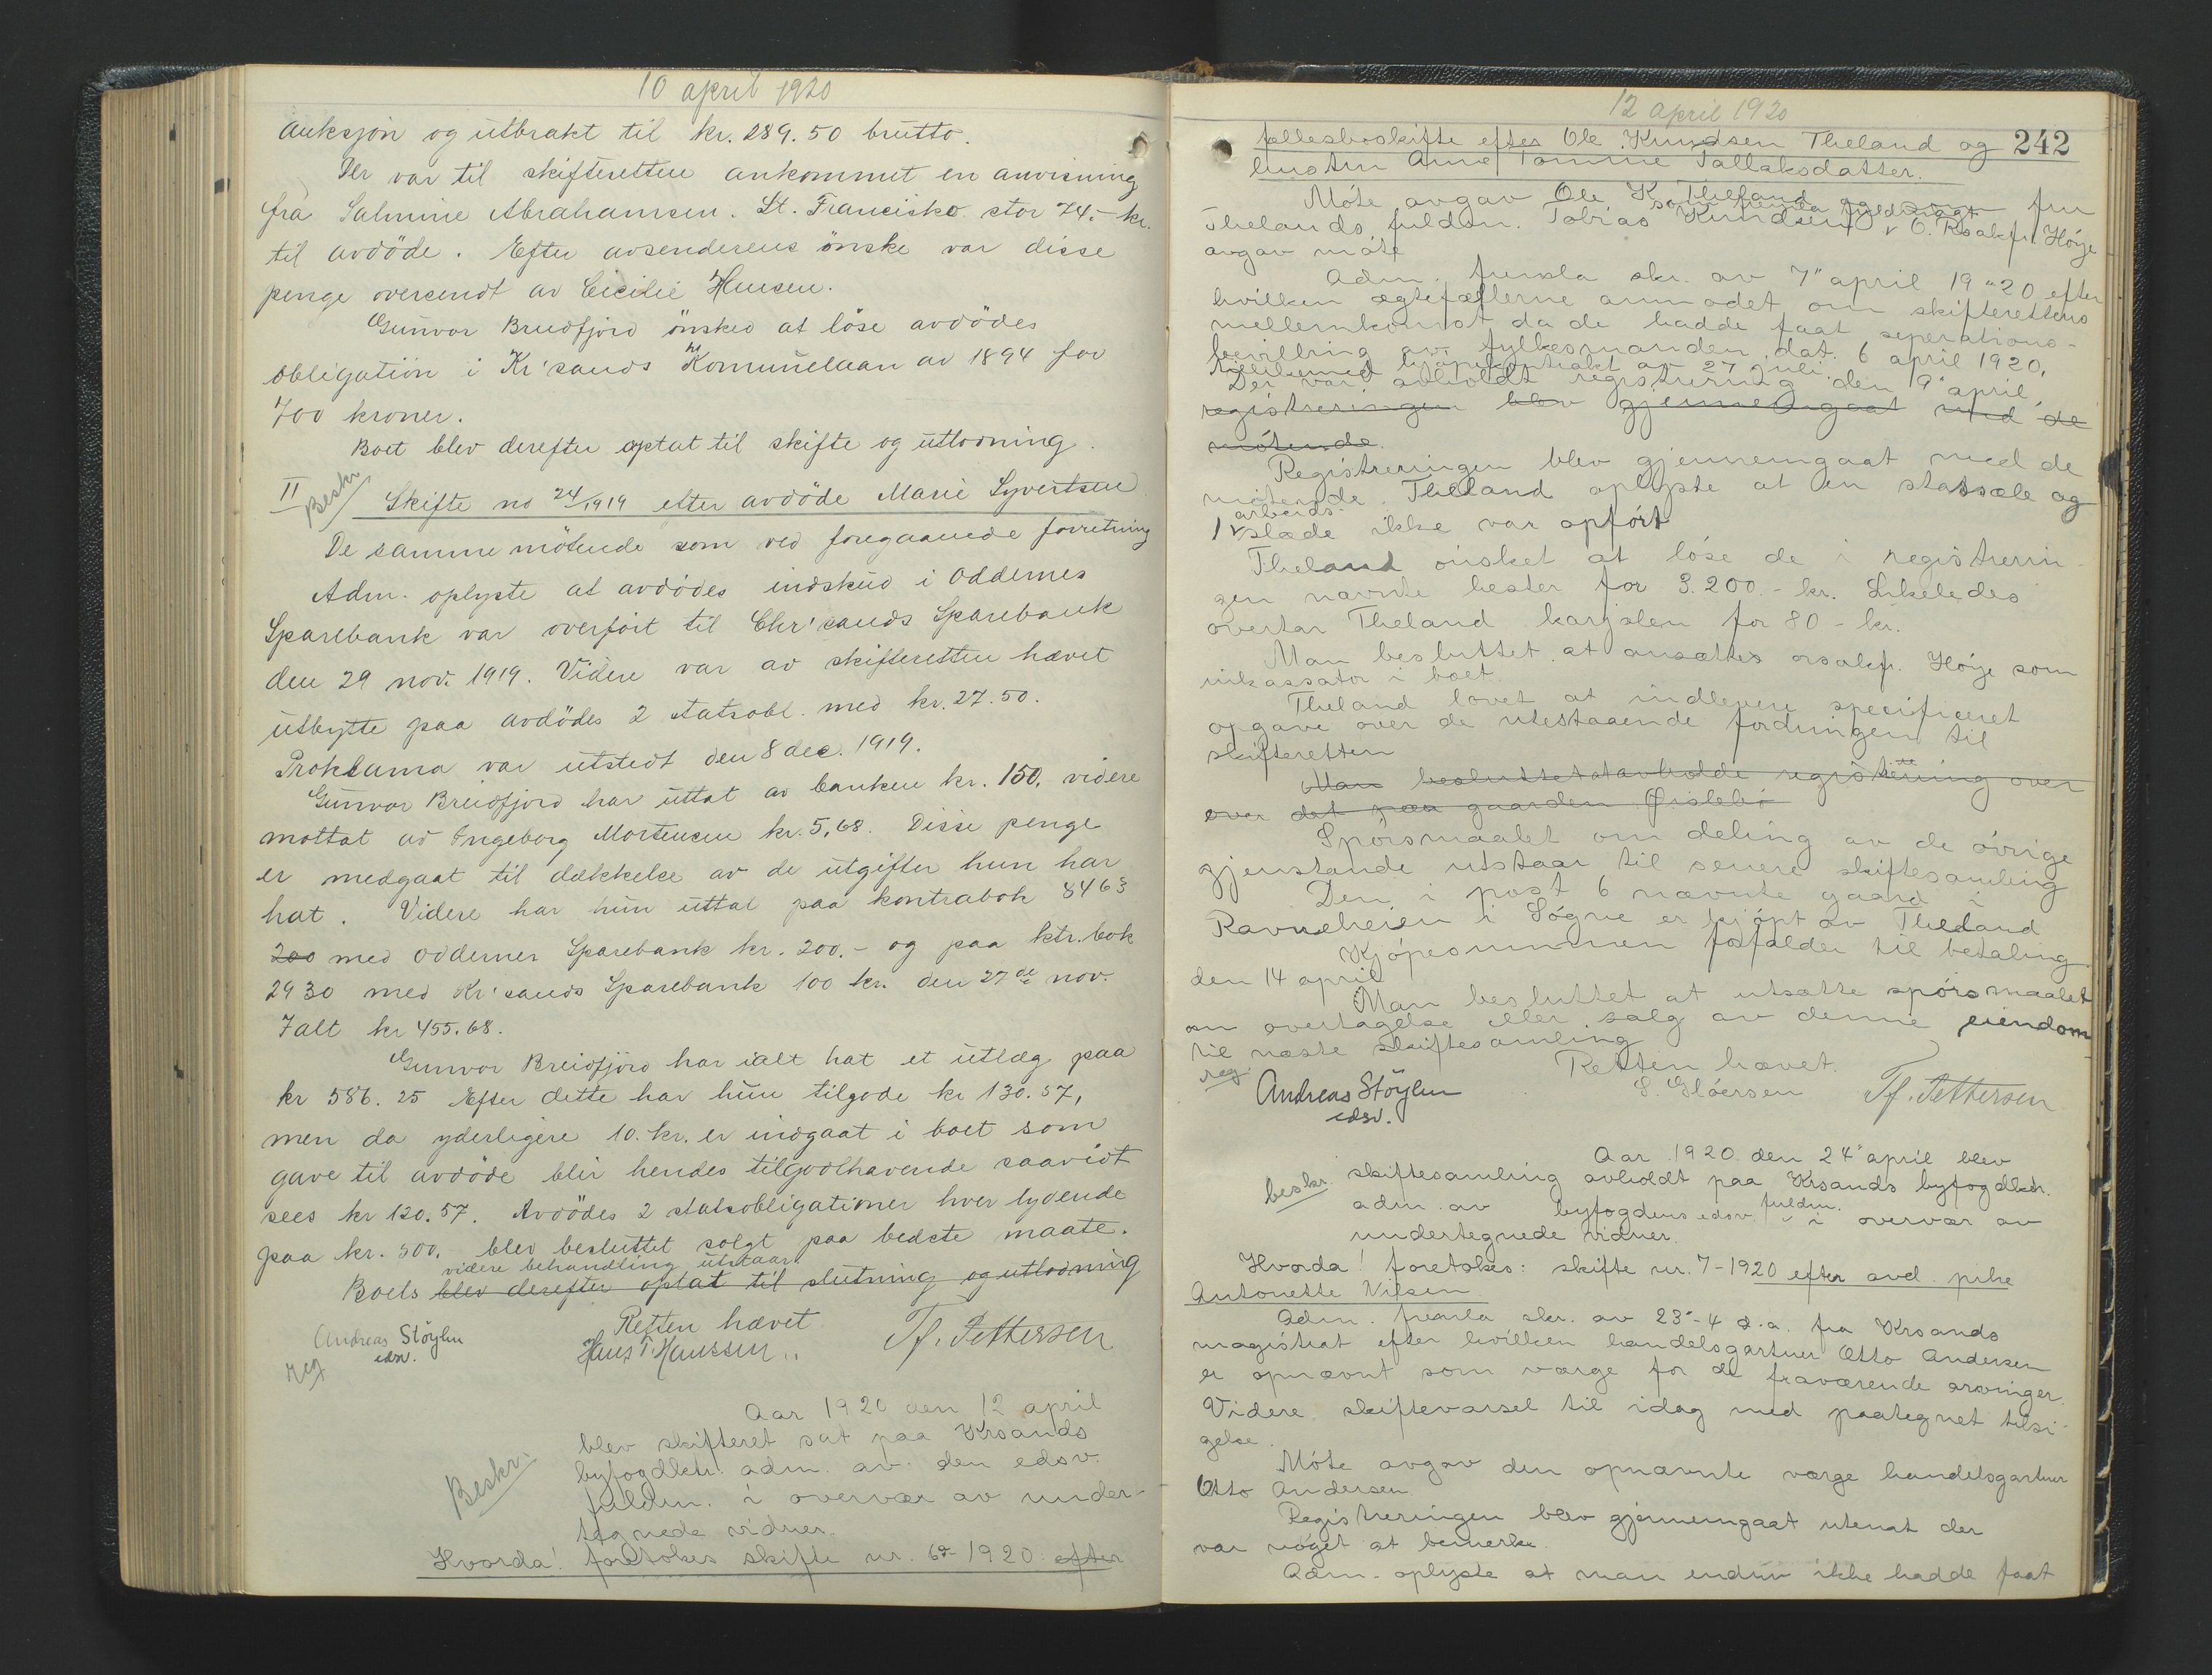 10 april 1920
Auksjon og utbrakt til kr. 289.50 brutto.
Der var til skifteretten ankommet en anvisning
fra Salmine Abrahamsen. St. Francisko stor 74.- kr.
til avdöde. Efter avsenderens önske var disse
penge oversendt av Cicilie Hansen.
Gunvor Breidfjord önsked at löse avdödes
obligation i Kr'sands Kommunelaan av 1894 for
700 kroner.
Boet blev derefter optat til skifte og utlodning.
II
Beskr
Skifte no 24/1919 efter avdöde Marie Syvertsen
De samme mötende som ved foregaaende forretning
Adm. oplyste at avdödes indskud i Oddernes
Sparebank var overfört til Chr'sands Sparebank
den 29 nov. 1919. Videre var av skifteretten hævet
utbytte paa avdödes 2 statsobl. med kr. 27.50.
Proklama var utstedt den 8 dec. 1919.
Gunvor Breidfjord har uttat av banken kr. 150, videre
mottat av Ingeborg Mortensen kr. 5,68. Disse penge
er medgaat til dækkelse av de utgifter hun har
hat. Videre har hun uttat paa kontrabok 8463
200 med Oddernes Sparebank kr. 200.- og paa ktr.bok
2930 med Kr'sands Sparebank 100 kr. den 27de nov.
Ialt kr 455.68.
Gunvor Breidfjord har ialt hat et utlæg paa
kr 586.25 Efter dette har hun tilgode kr 130.57,
men da yderligere 10.kr. er indgaat i boet som
gave til avdöde blir hendes tilgodehavende saavidt
sees kr 120.57. Avdödes 2 statsobligationer hver lydende
paa kr. 500. blev besluttet solgt paa bedste maate.
videre behandling utstaar
Boets blev derefter optat til slutning og utlodning
Retten hævet
Andreas Stöylen
edsv.
Hans T. Hanssen
Tf. Pettersen
reg
Aar 1920 den 12 april
blev skifteret sat paa Krsands
byfogdktr. adm. av den edsv.
fuldm. i overvær av under-
tegnede vidner.
Beskr.
Hvorda! foretokes skifte nr. 6-1920 efter
12 april 1920
242
fællesboskifte efter Ole Knudsen Theland og
hustru Anne Tomine Tallaksdatter.
Möte avgav Ole K. Theland og fru
Thelands fuldm. Tobias Knudsen O. Rsakf. Höye
avgav möte
Adm. fremla skr. av 7" april 19"20 efter
hvilken ægtefællerne anmodet om skifterettens
mellemkomst da de hadde faat seperations-
bevilling av fylkesmanden dat. 6 april 1920.
kjöpekontrakt av 27 juli.
Der var avholdt registrering den 9" april,
registreringen blev gjennemgaat med de
mötende.
Registreringen blev gjennemgaat med de
mötende. Theland oplyste at en stassæle og
arbeids-
1 slæde ikke var opfört
Theland önsket at löse de i registrerin-
gen nævnte hester for 3.200.- kr. Likeledes
overtar Theland karjolen for 80 - kr.
Man besluttet at ansættes orsakf. Höye som
inkassator i boet.
Theland lovet at indlevere specificeret
opgave over de utestaaende fordringen til
skifteretten
Man besluttet at avholde registrering over
over det paa gaarden Öisleböi
Spörsmaalet om deling av de övrige
gjenstande utstaar til senere skiftesamling
Den i post 6 nævnte gaard i
Ravneheien i Sögne er kjöpt av Theland
Kjöpesummen forfalder til betaling
den 14 april
Man besluttet at utsætte spörsmaalet
om overtagelse eller salg av denne eiendom
til næste skiftesamling
reg
Retten hævet.
Andreas Stöylen
edsv.
S. Glöersen
Tf. Pettersen
Aar 1920 den 24" april blev
beskr.
skiftesamling avholdt paa Krsands byfogdktr.
adm. av byfogdens edsv. fuldm. i overvær av
undertegnede vidner.
Hvorda! foretokes: skifte nr. 7-1920 efter avd. pike
Antonette Nilsen
Adm. fremla skr. av 23-4 d.a. fra Krsands
magistrat efter hvilken handelsgartner Otto Andersen
er opnævnt som værge for de fraværende arvinger.
Videre skiftevarsel til idag med paategnet tilsi-
gelse.
Möte avgav den opnævnte værge handelsgartner
Otto Andersen
Registreringen blev gjennemgaat utenat der
var noget at bemerke.
Adm. oplyste at man endnu ikke hadde faat